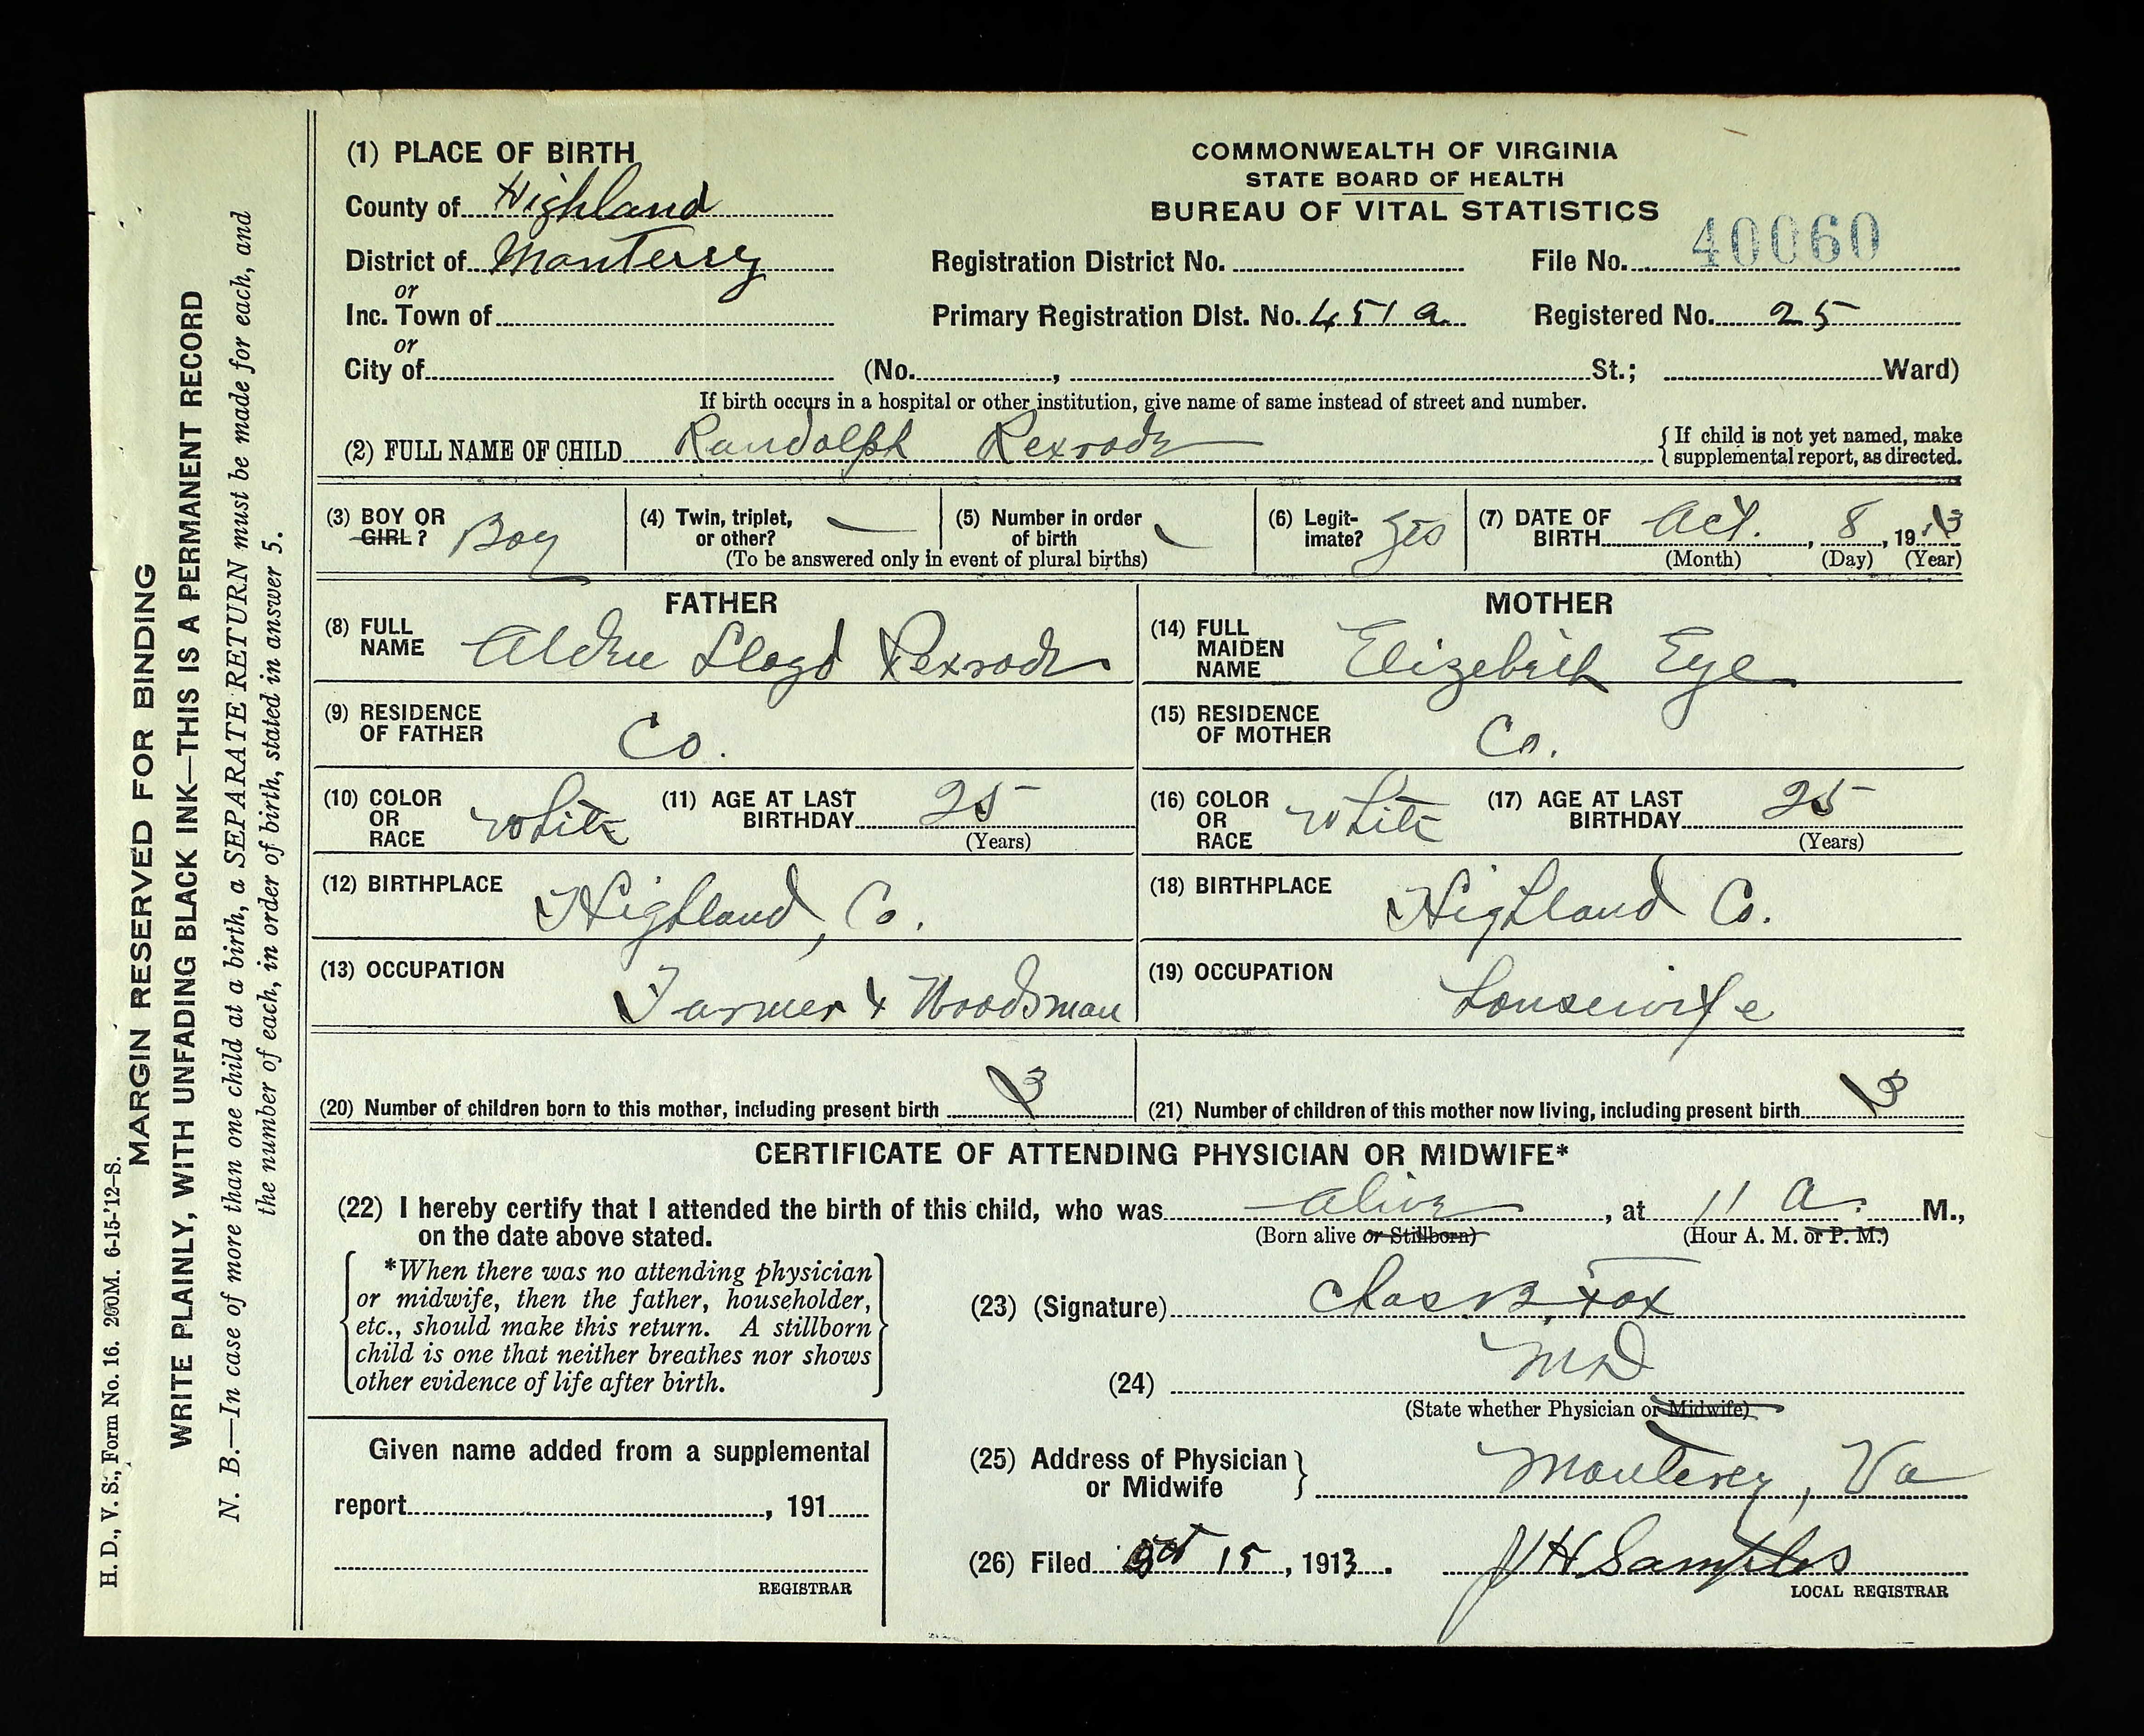 (1) PLACE OF BIRTH
County of Highland
District of Monterey
or
Inc. Town of
or
City of (No. , St.; Ward)
COMMONWEALTH OF VIRGINIA
STATE BOARD OF HEALTH
BUREAU OF VITAL STATISTICS
Registration District No. File No. 40060
Primary Registration Dist. No. 451 a Registered No. 25
If birth occurs in a hospital or other institution, give name of same instead of street and number.
(2) FULL NAME OF CHILD Randolph Rexrode
{ If child is not yet named, make
supplemental report, as directed.
(3) BOY OR
GIRL ? Boy
(4) Twin, triplet,
or other? —
(5) Number in order
of birth
(To be answered only in event of plural births)
(6) Legit-
imate? Yes
(7) DATE OF
BIRTH Oct. , 8 , 1913
(Month) (Day) (Year)
FATHER
(8) FULL
NAME Lloyd Rexrode
(9) RESIDENCE
OF FATHER Co.
(10) COLOR
OR
RACE White
(11) AGE AT LAST
BIRTHDAY 25
(Years)
(12) BIRTHPLACE Highland, Co.
(13) OCCUPATION Farmer & Woodsman
MOTHER
(14) FULL
MAIDEN
NAME Elizebeth Eye
(15) RESIDENCE
OF MOTHER Co.
(16) COLOR
OR
RACE White
(17) AGE AT LAST
BIRTHDAY 25
(Years)
(18) BIRTHPLACE Highland Co.
(19) OCCUPATION Housewife
(20) Number of children born to this mother, including present birth 3
(21) Number of children of this mother now living, including present birth 3
CERTIFICATE OF ATTENDING PHYSICIAN OR MIDWIFE*
(22) I hereby certify that I attended the birth of this child, who was alive , at 11 a. M.,
on the date above stated. (Born alive or Stillborn) (Hour A. M. or P. M.)
*When there was no attending physician
or midwife, then the father, householder,
etc., should make this return. A stillborn
child is one that neither breathes nor shows
other evidence of life after birth.
(23) (Signature) Chas B. Fox
(24) MD
(State whether Physician or Midwife)
Given name added from a supplemental
report , 191
REGISTRAR
(25) Address of Physician
or Midwife } Monterey, Va
(26) Filed Oct 15 , 1913. J H Samples
LOCAL REGISTRAR
H. D., V. S., Form No. 16. 200M. 6-15-'12-S.
MARGIN RESERVED FOR BINDING
WRITE PLAINLY, WITH UNFADING BLACK INK—THIS IS A PERMANENT RECORD
N. B.—In case of more than one child at a birth, a SEPARATE RETURN must be made for each, and
the number of each, in order of birth, stated in answer 5.